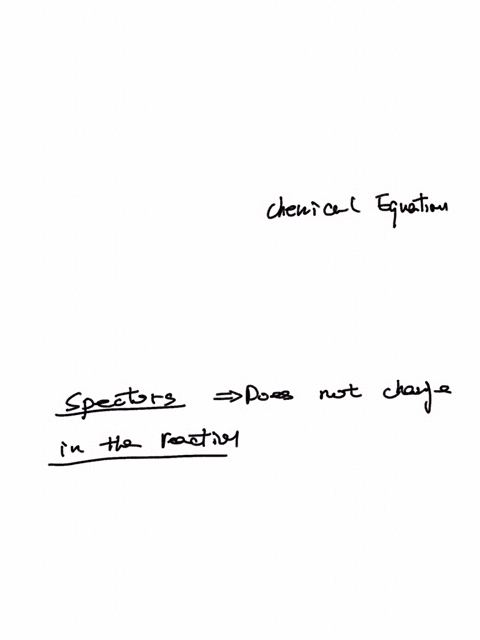 Chemical Equation
Spectors ⇒ Does not change
in the reaction